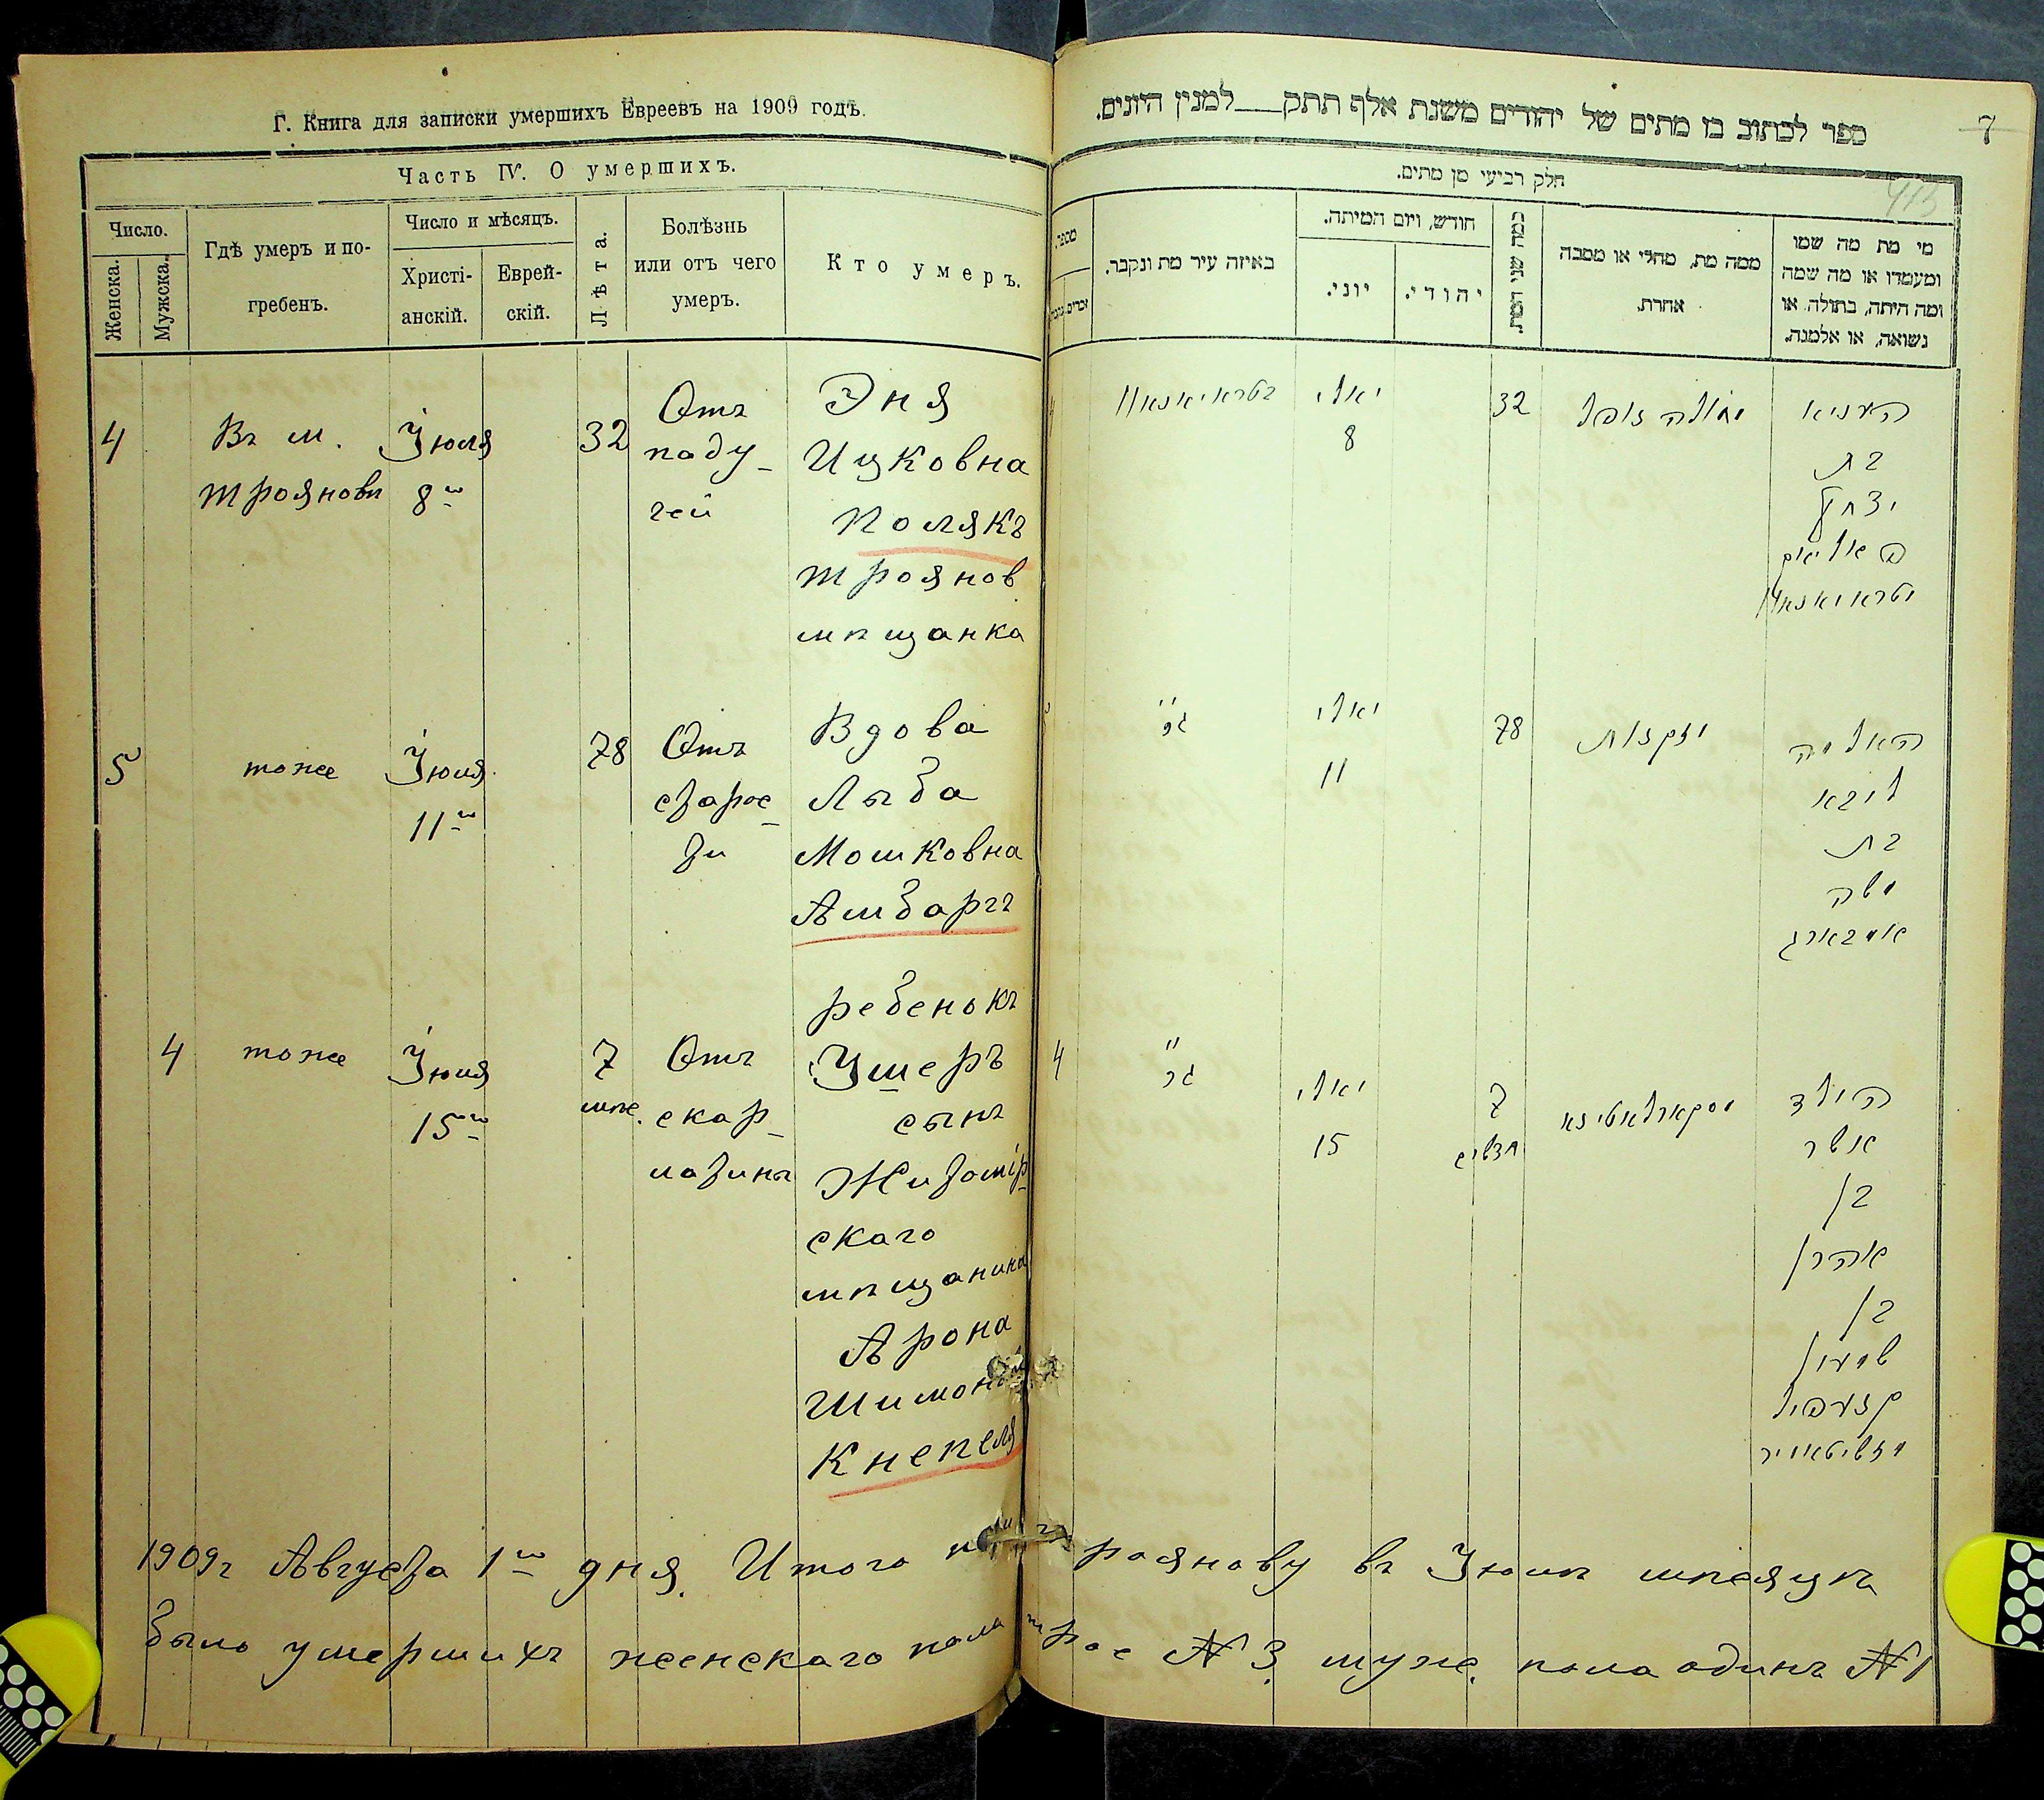 Г. Книга для записки умершихъ Евреевъ на 1909 годъ.
Часть IV. О умершихъ.
Число.
Женска.
Мужска.
Гдѣ умеръ и по-
гребенъ.
Число и мѣсяцъ.
Христі-
анскій.
Еврей-
скій.
Лѣта.
Болѣзнь
или отъ чего
умеръ.
Кто умеръ.
4
Въ м.
Трояновѣ
Іюля
8го
32
Отъ
паду-
чей
Эня
Ицковна
Полякъ
Троянов
мѣщанка
5
тоже
Іюля
11го
78
Отъ
старос-
ти
Вдова
Лыба
Мошковна
Амбаргъ
4
тоже
Іюля
15го
7
мѣс.
Отъ
скар-
латины
ребенокъ
Ушеръ
сынъ
Житомір-
скаго
мѣщанина
Арона
Шимона
Кнепеля
ספר לכתוב בו מתים של יהודים משנת אלף תתק___למנין היונים.
7
חלק רביעי מן מתים.
מספר.
באיזה עיר מת ונקבר.
חודש, ויום המיתה.
יוני.
יהודי.
כמה שני המת.
ממה מת, מחלי או מסבה
אחרת.
מי מת מה שמו
ומעמדו או מה שמה
ומה היתה, בתולה, או
נשואה, או אלמנה.
יאלי
8
32
בת
יצחק
יאלי
11
78
מזקנות
ליבא
בת
משה
אמבארג
4
יאלי
15
7
חדשים
מסקארלאטינא
הילד
אשר
בן
אהרן
בן
שמעון
1909г Августа 1го дня. Итого рояново въ Іюлѣ мѣсяцѣ
было умершихъ женскаго пола трое № 3. муже. пола одинъ № 1